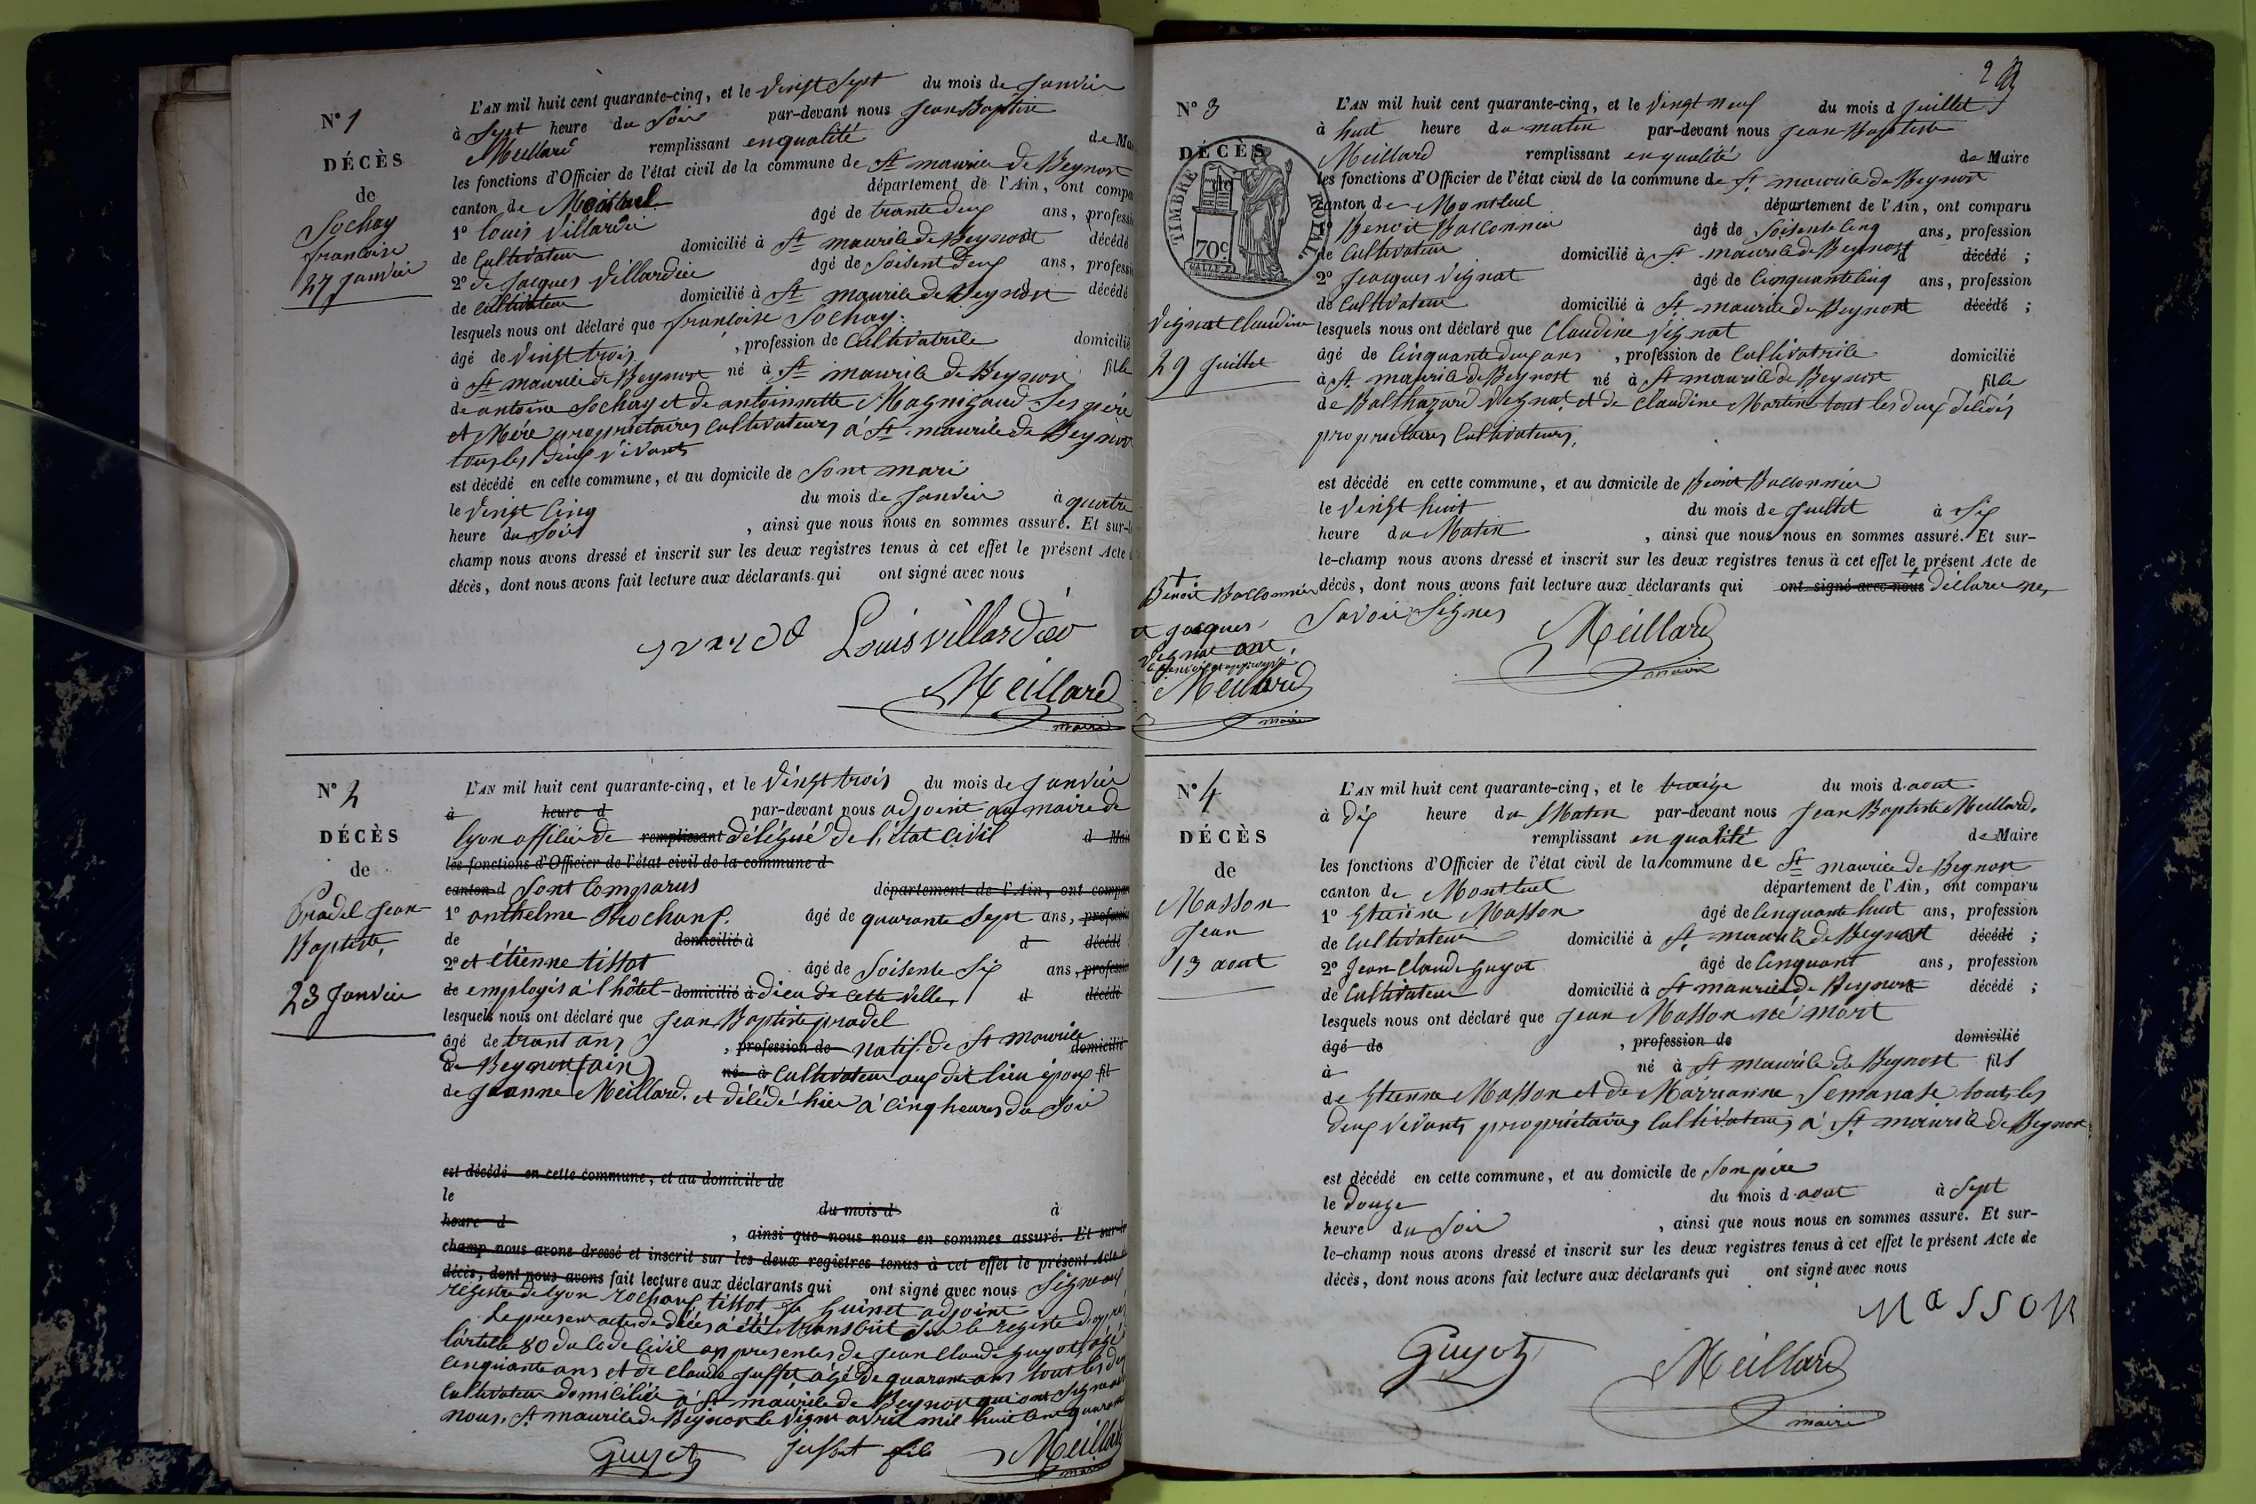 N° 1
DÉCÈS
de
Sochay
francoise
27 Janvier
L'AN mil huit cent quarante-cinq, et le vingt Sept du mois de Janvier
à Sept heure du Soir par-devant nous Jean Baptiste
Meillard remplissant enqualité de Mai
les fonctions d'Officier de l'état civil de la commune de St maurice de Beynost
canton de Montluel département de l'Ain, ont compa
1° louis Villardier âgé de trante deux ans, professi
de Cultivateur domicilié à St maurice de Beynost décédé
2° de Jacques Villardier âgé de Soisent deux ans, professi
de Cultivateur domicilié à St maurice de Beynost décédé
lesquels nous ont déclaré que francoise Sochay.
âgé de vingt trois , profession de Cultivatrice domicilié
à St maurice de Beynost né à St maurice de Beynost fille
de antoine Sochay et de antoinnette Magnigaud Ses père
et Mère proprietaires Cultivateurs à St maurice de Beynos
tous les deux vivants
est décédé en cette commune, et au domicile de Sont mari
le vingt Cinq du mois de Janvier à quatre
heure du Soir , ainsi que nous nous en sommes assuré. Et sur-l
champ nous avons dressé et inscrit sur les deux registres tenus à cet effet le présent Acte
décès, dont nous avons fait lecture aux déclarants qui ont signé avec nous
Louis villardier
Meillard
maire
N° 2
DÉCÈS
de
Pradel Jean
Baptiste,
23 Janvier
L'AN mil huit cent quarante-cinq, et le vingt trois du mois de Janvier
à heure d par-devant nous adjoint au maire de
lyon officier de remplissant délégué de l'état Civil d Mai
les fonctions d'Officier de l'état civil de la commune d
canton d Sont Comparus département de l'Ain, ont compar
1° anthelme Rochanf. âgé de quarante Sept ans, professi
de domicilié à d décédé
2° et étienne tissot âgé de Soisente Six ans, professi
de employés à l'hôtel domicilié à dieu de cette ville, d décédé
lesquels nous ont déclaré que Jean Baptiste pradel
âgé de trant ans , profession de natif de St maurice domicilié
à de Beynost (ain) né à Cultivateur aux dit lieu époux fil
de Jeanne Meillard. et décédé hier à Cinq heures du Soir
est décédé en cette commune, et au domicile de
le du mois d à
heure d , ainsi que nous nous en sommes assuré. Et sur-le
champ nous avons dressé et inscrit sur les deux registres tenus à cet effet le présent Acte
décès, dont nous avons fait lecture aux déclarants qui ont signé avec nous Signe aux
registre de lyon rochanf tissot Guinet adjoint
Le present acte de décès a été transcrit Sur le registre d'après
l'article 80 du Code Civil en presentes de Jean Claude Guyot âgé
Cinquante ans et de Claude Juffet âgé de quarant ans tout les deux
Cultivateur domiciliée à St maurice de Beynost qui ont Signe avec
nous. St maurice de Beynost le vignt avril mil huit Cent quarante
Guyot Juffet fils Meillard
maire
2
N° 3
DÉCÈS
de
TIMBRE ROYAL
70c
Vignat Claudine
29 Juillet
L'AN mil huit cent quarante-cinq, et le vingt neuf du mois d Juillet
à huit heure du matin par-devant nous Jean Baptiste
Meillard remplissant en qualité de Maire
les fonctions d'Officier de l'état civil de la commune de St. maurice de Beynost
canton de Montluel département de l'Ain, ont comparu
1° Benoit Ballonnier âgé de Soisente Cinq ans, profession
de Cultivateur domicilié à St. maurice de Beynost décédé ;
2° Jacques vignat âgé de Cinquante Cinq ans, profession
de Cultivateur domicilié à St. maurice de Beynost décédé ;
lesquels nous ont déclaré que Claudine vignat
âgé de Cinquante deux ans , profession de Cultivatrice domicilié
à St. maurice de Beynost né à St maurice de Beynost fille
de Balthazard vignat et de Claudine Martin tout les deux décédés
proprietaires Cultivateurs.
est décédé en cette commune, et au domicile de Benoit Ballonnier
le vingt huit du mois de Juillet à Six
heure du Matin , ainsi que nous nous en sommes assuré. Et sur-
le-champ nous avons dressé et inscrit sur les deux registres tenus à cet effet le présent Acte de
décès, dont nous avons fait lecture aux déclarants qui ont signé avec nous déclare ne
Savoir Signer
Meillard
maire
Benoit Ballonnier
et Jacques
Vignat ont
Meillard
maire
N° 4
DÉCÈS
de
Masson
Jean
13 aout
L'AN mil huit cent quarante-cinq, et le traize du mois d aout
à dix heure du Matin par-devant nous Jean Baptiste Meillard.
remplissant en qualité de Maire
les fonctions d'Officier de l'état civil de la commune de St maurice de Beynost
canton de Montluel département de l'Ain, ont comparu
1° Etienne Masson âgé de Cinquante huit ans, profession
de Cultivateur domicilié à St. maurice de Beynost décédé ;
2° Jean Claude Guyot âgé de Cinquant ans, profession
de Cultivateur domicilié à St maurice de Beynost décédé ;
lesquels nous ont déclaré que Jean Masson né mort
âgé de , profession de domicilié
à né à St maurice de Beynost fils
de Etienne Masson et de Marrianne Semanase tout les
deux vivants propriétaires Cultivateurs à St. maurice de Beynost
est décédé en cette commune, et au domicile de Son père
le douze du mois d aout à Sept
heure du Soir , ainsi que nous nous en sommes assuré. Et sur-
le-champ nous avons dressé et inscrit sur les deux registres tenus à cet effet le présent Acte de
décès, dont nous avons fait lecture aux déclarants qui ont signé avec nous
Masson
Guyot
Meillard
maire